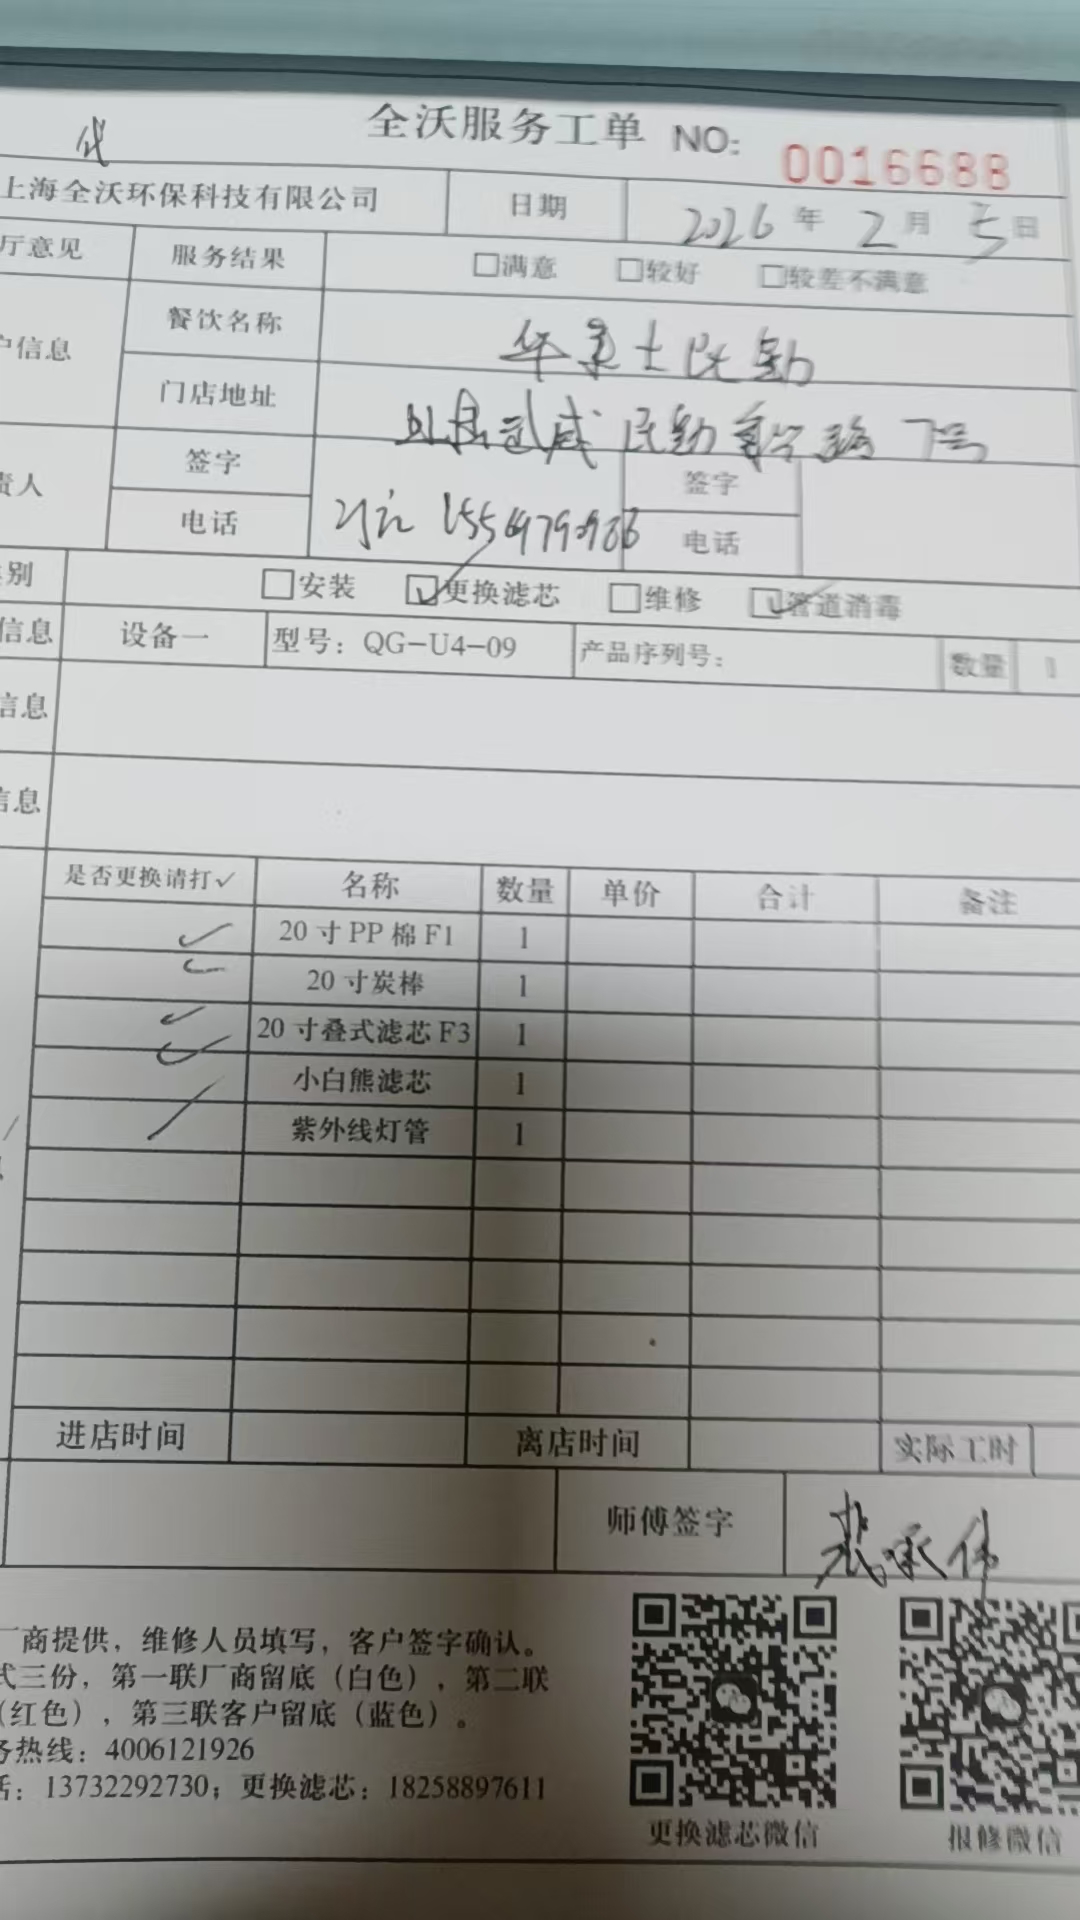 代
全沃服务工单 NO: 0016688
上海全沃环保科技有限公司 日期 2026年2月5日
厅意见 服务结果 □满意 □较好 □较差不满意
户信息 餐饮名称 华莱士民勤
门店地址 武威民勤 路 7号
责人 签字 签字
电话 电话
类别 □安装 ☑更换滤芯 □维修 ☑管道消毒
信息 设备一 型号：QG-U4-09 产品序列号： 数量 1
信息
信息
是否更换请打✓ 名称 数量 单价 合计 备注
✓ 20寸PP棉F1 1
✓ 20寸炭棒 1
✓ 20寸叠式滤芯F3 1
✓ 小白熊滤芯 1
/ 紫外线灯管 1
进店时间 离店时间 实际工时
师傅签字 裴承伟
厂商提供，维修人员填写，客户签字确认。
式三份，第一联厂商留底（白色），第二联
（红色），第三联客户留底（蓝色）。
务热线：4006121926
话：13732292730；更换滤芯：18258897611
更换滤芯微信 报修微信